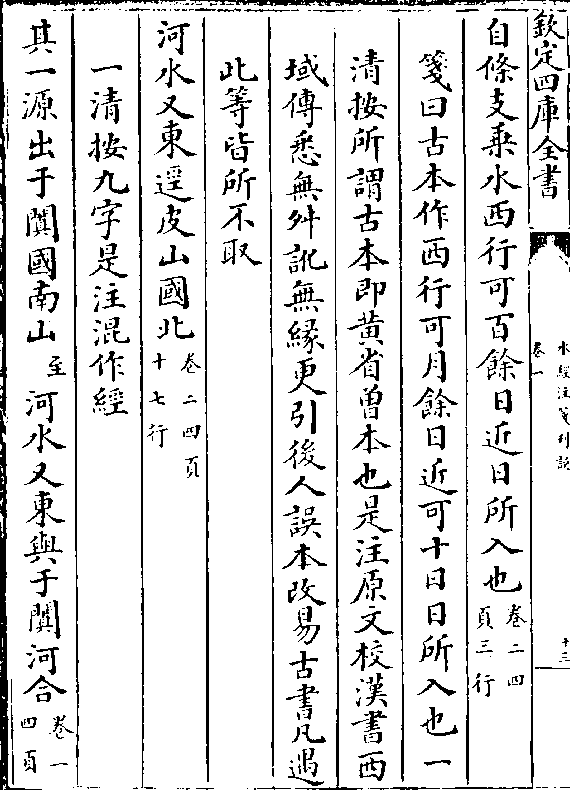 欽定四庫全書
水經注箋刊誤
卷一
十三
自條支乘水西行可百餘日近日所入也卷二四頁三行
箋曰古本作西行可月餘日近可十日日所入也一
清按所謂古本即黄省曾本也是注原文校漢書西
域傳悉無舛訛無緣更引後人誤本改易古書凡遇
此等皆所不取
河水又東逕皮山國北卷二四頁十七行
一清按九字是注混作經
其一源出于闐國南山至河水又東與于闐河合卷一四頁